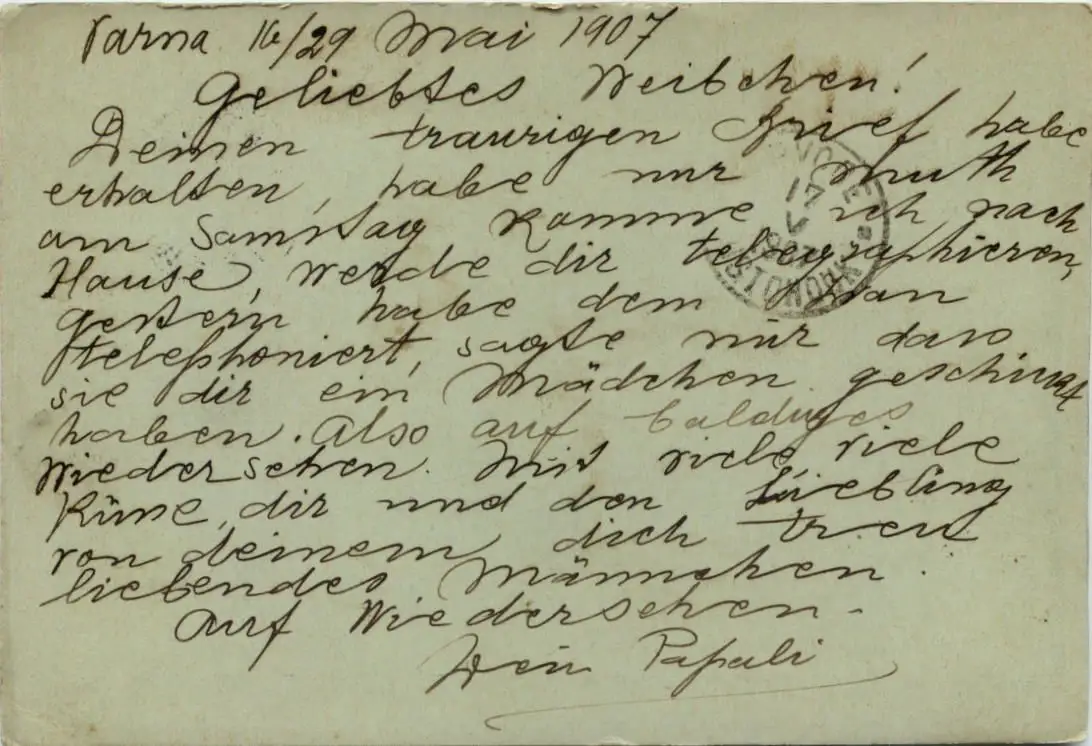 Varna 16/29 Mai 1907
Geliebtes Weibchen!
Deinen traurigen Brief habe
erhalten, habe nur Muth
am Samstag komme ich nach
Hause, werde dir telegraphieren,
gestern habe dem
telephoniert, sagte mir dass
sie dir ein Mädchen geschickt
haben. Also auf baldiges
Wiedersehen. Mit viele, viele
Küsse, dir und den Liebling
von deinem, dich treu
liebendes Männchen.
Auf Wiedersehen.
Dein Papali